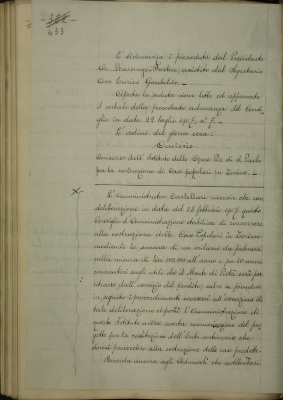 433
L'adunanza è presieduta dal Presidente
Cav. Enrico
Aperta la seduta viene letto ed approvato
il verbale della precedente adunanza del Consi-
glio in data 22 luglio 1907, n. 7. -
L'ordine del giorno reca:
Concorso dell'Istituto delle Opere Pie di S. Paolo
per la costruzione di Case popolari in Torino. -
L'Amministratore Castellari ricorda che con
deliberazione in data del 25 febbraio 1907 questo
Consiglio d'Amministrazione stabiliva di concorrere
alla costruzione delle Case Popolari in Torino
mediante la somma di un milione da
nella misura di lire 100,000 all'anno e per 10 anni
consecutivi sugli utili che il Monte di Pietà
dall'esercizio del Credito; salvo a prendersi
in seguito i provvedimenti necessari all'esecuzione di
tale deliberazione dopochè l'Amministrazione di
questo Istituto avesse avuta comunicazione del pro-
getto per la costituzione dell'Ente autonomo che
dovrà provvedere alla costruzione delle case predette.
Ricorda ancora agli Adunati che